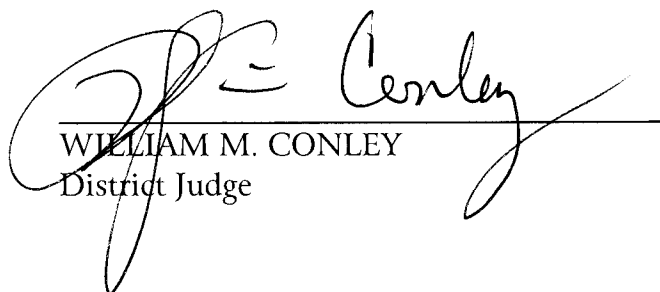 Conley
WILLIAM M. CONLEY
District Judge